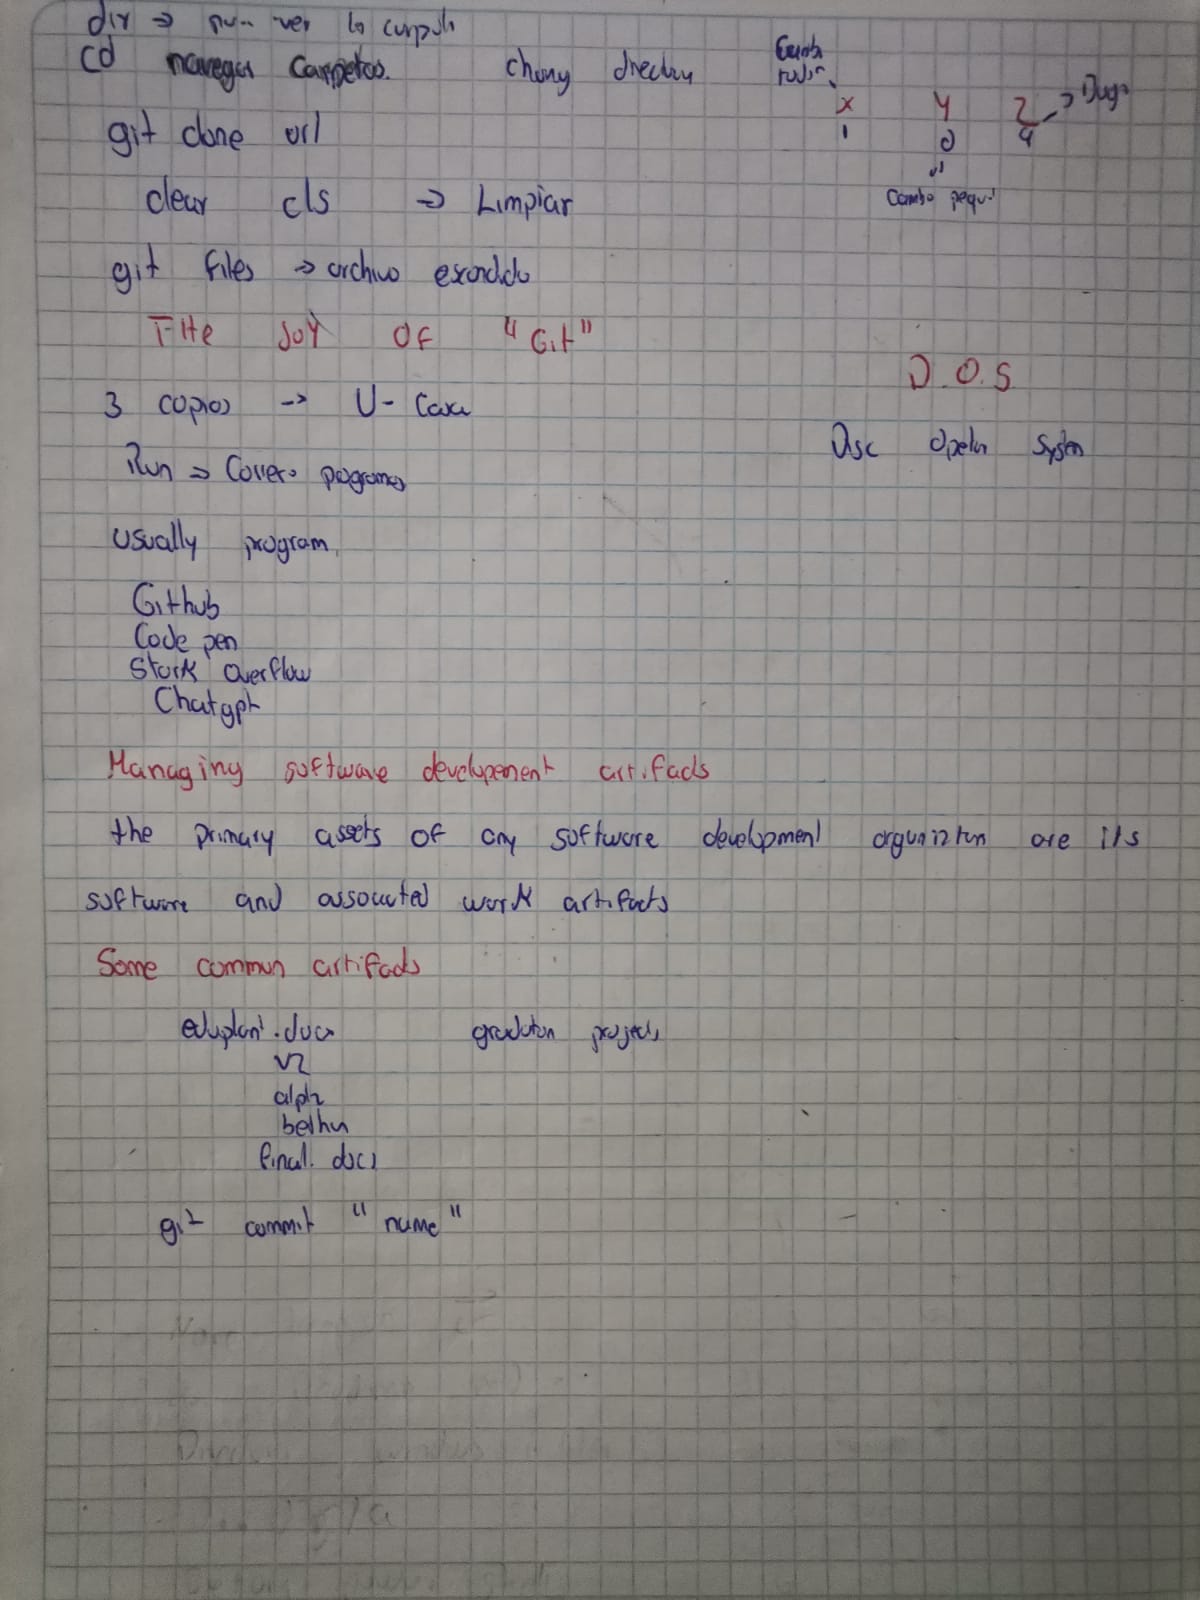 dir → ver la
cd navegar Carpetas. chang directory
x y z → Bugs
1 0 4
Cambio pequ
git clone url
clear cls → Limpiar
git files → archivo escondido
THe JoY OF "Git"
D.O.S
3 copias → U - Casa
Disc System
Run → Correr programas
Usually program
Github
Code pen
Stack Overflow
Chatgpt
Managing software developement artifacts
the primary assets of any software development organization are its
software and associated work artifacts
Some common artifacts
.docx projects
V2
alph
final. docx
git commit "name"